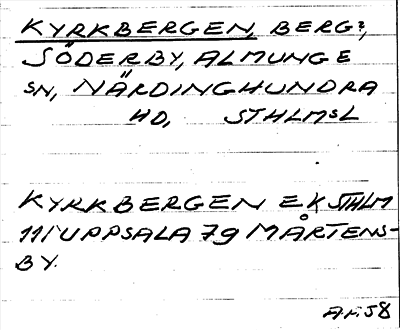 KYRKBERGEN, BERG?,
SÖDERBY, ALMUNGE
SN, NÄRDINGHUNDRA
HD, STHLMSL
KYRKBERGEN EK STHLM
111 UPPSALA 79 MÅRTENS-
BY.
A.H.58